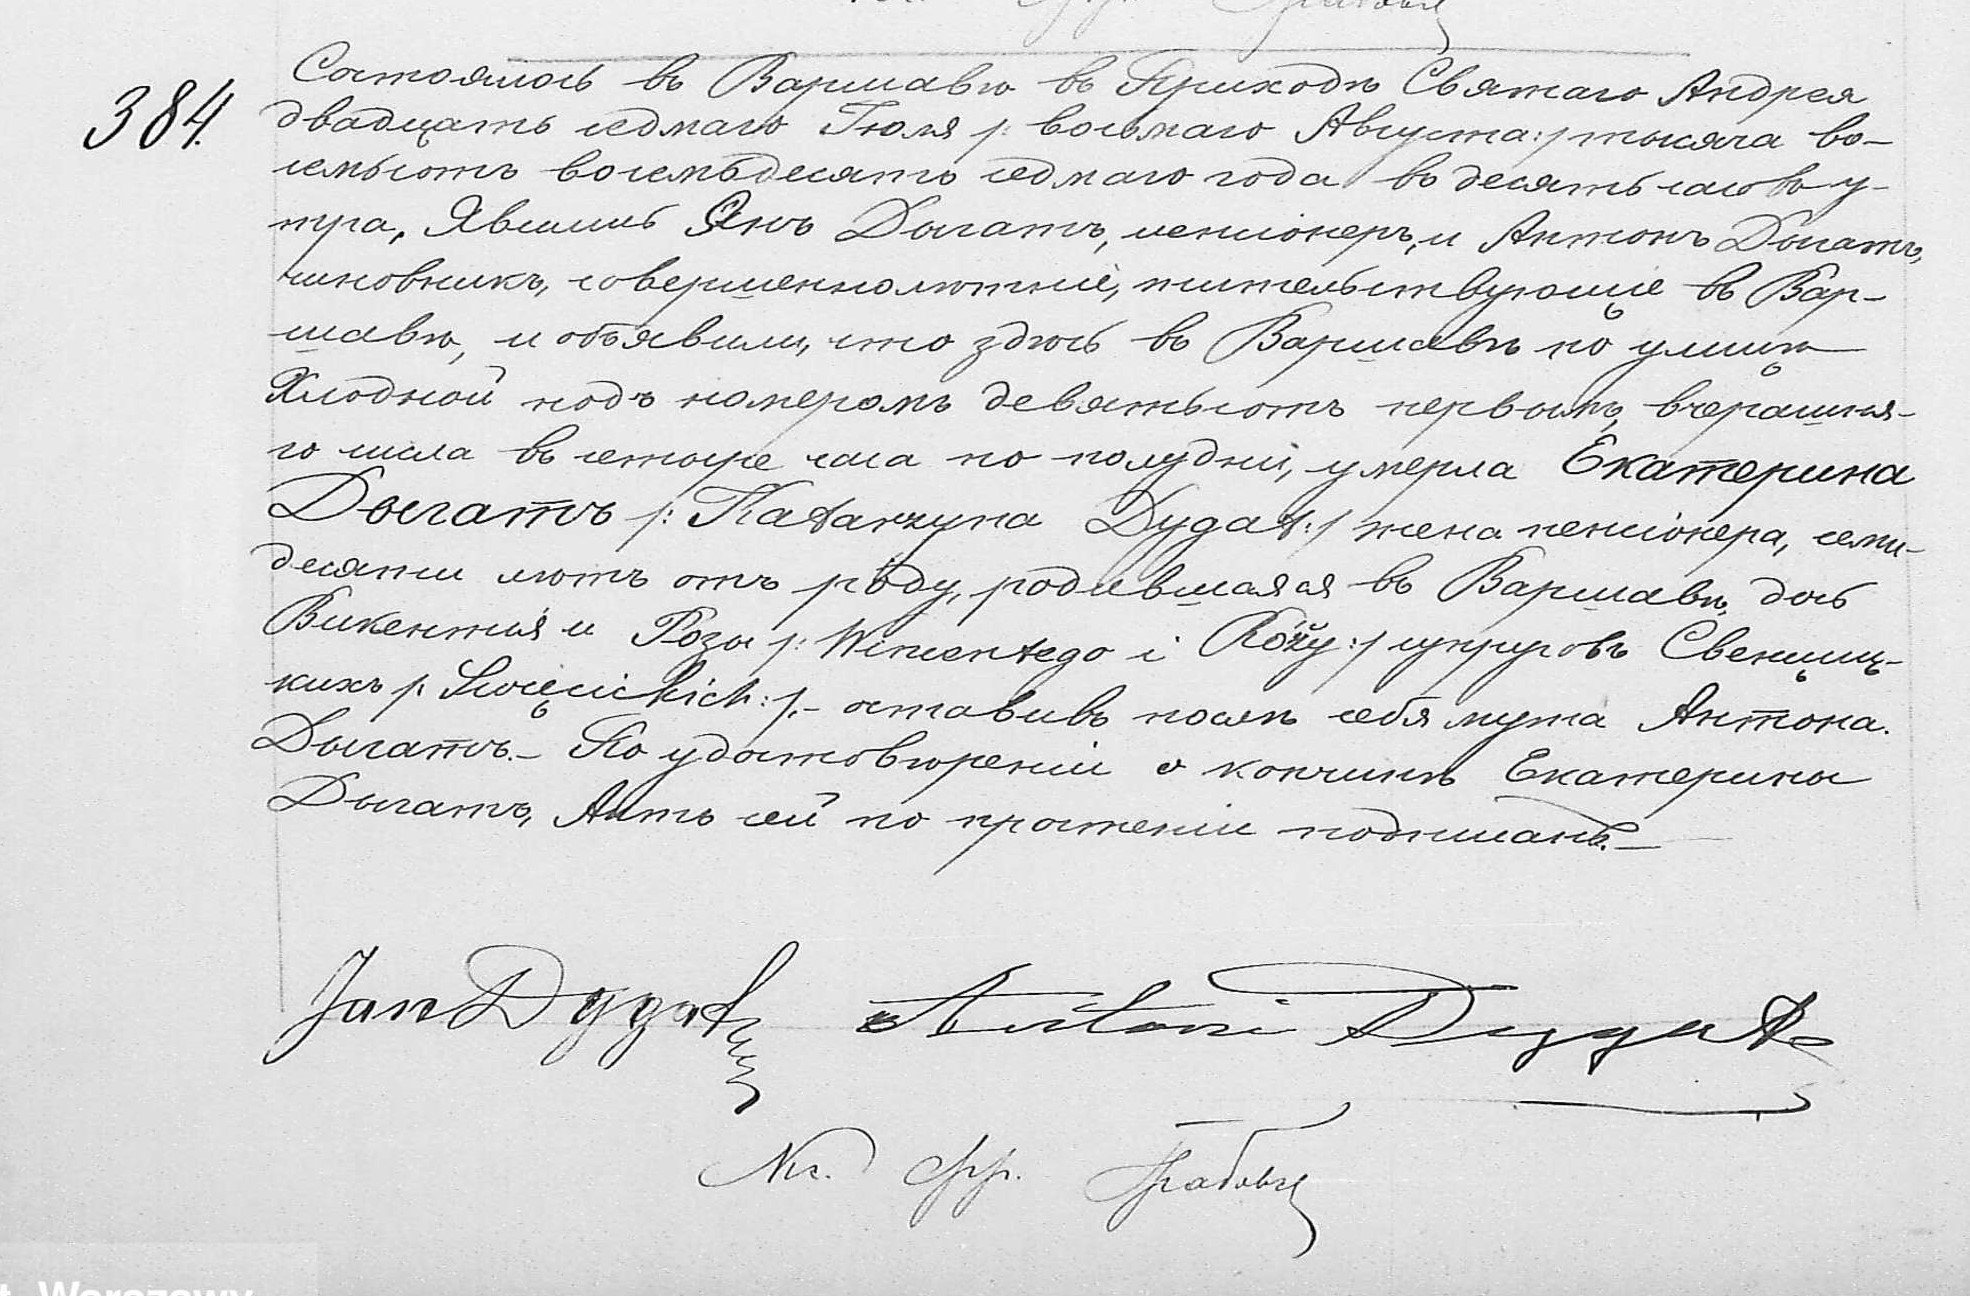 384.
Состоялось въ Варшавѣ въ Приходѣ Святаго Андрея
двадцать седмаго Іюля /: восьмаго Августа :/ тысяча во-
семьсотъ восемьдесятъ седмаго года въ десять часовъ у-
тра. Явились Янъ Дыгатъ, пенсіонеръ, и Антонъ Дыгатъ,
чиновникъ, совершеннолѣтніе, жительствующіе въ Вар-
шавѣ, и объявили, что здѣсь въ Варшавѣ по улицѣ
Хлодной подъ номеромъ девятьсотъ первымъ, вчерашня-
го числа въ четыре часа по полудни, умерла Екатерина
Дыгатъ /: Katarzyna Dygat :/ жена пенсіонера, семи-
десяти лѣтъ отъ роду, родившаяся въ Варшавѣ, дочь
Викентія и Розы /: Wincentego i Róży :/ супруговъ Свенциц-
кихъ /: Święcickich :/.- оставивъ послѣ себя мужа Антона
Дыгатъ.- По удостовѣреніи о кончинѣ Екатерины
Дыгатъ, Актъ сей по прочтеніи подписанъ.-
Jan Dygat Antoni Dygat